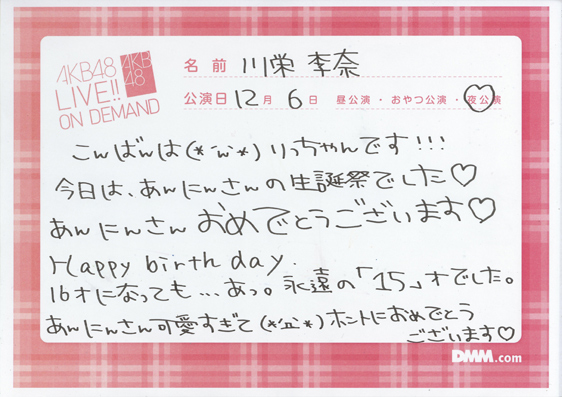 AKB48
LIVE!!
ON DEMAND
AKB
48
名前 川栄 李奈
公演日 12月 6日 昼公演・おやつ公演・夜公演
こんばんは(*´ω`*)りっちゃんです!!!
今日は、あんにんさんの生誕祭でした♡
あんにんさんおめでとうございます♡
Happy birth day.
16才になっても…あっ。永遠の「15」才でした。
あんにんさん可愛すぎて(*´Д`*)ホントにおめでとう
ございます♡
DMM.com